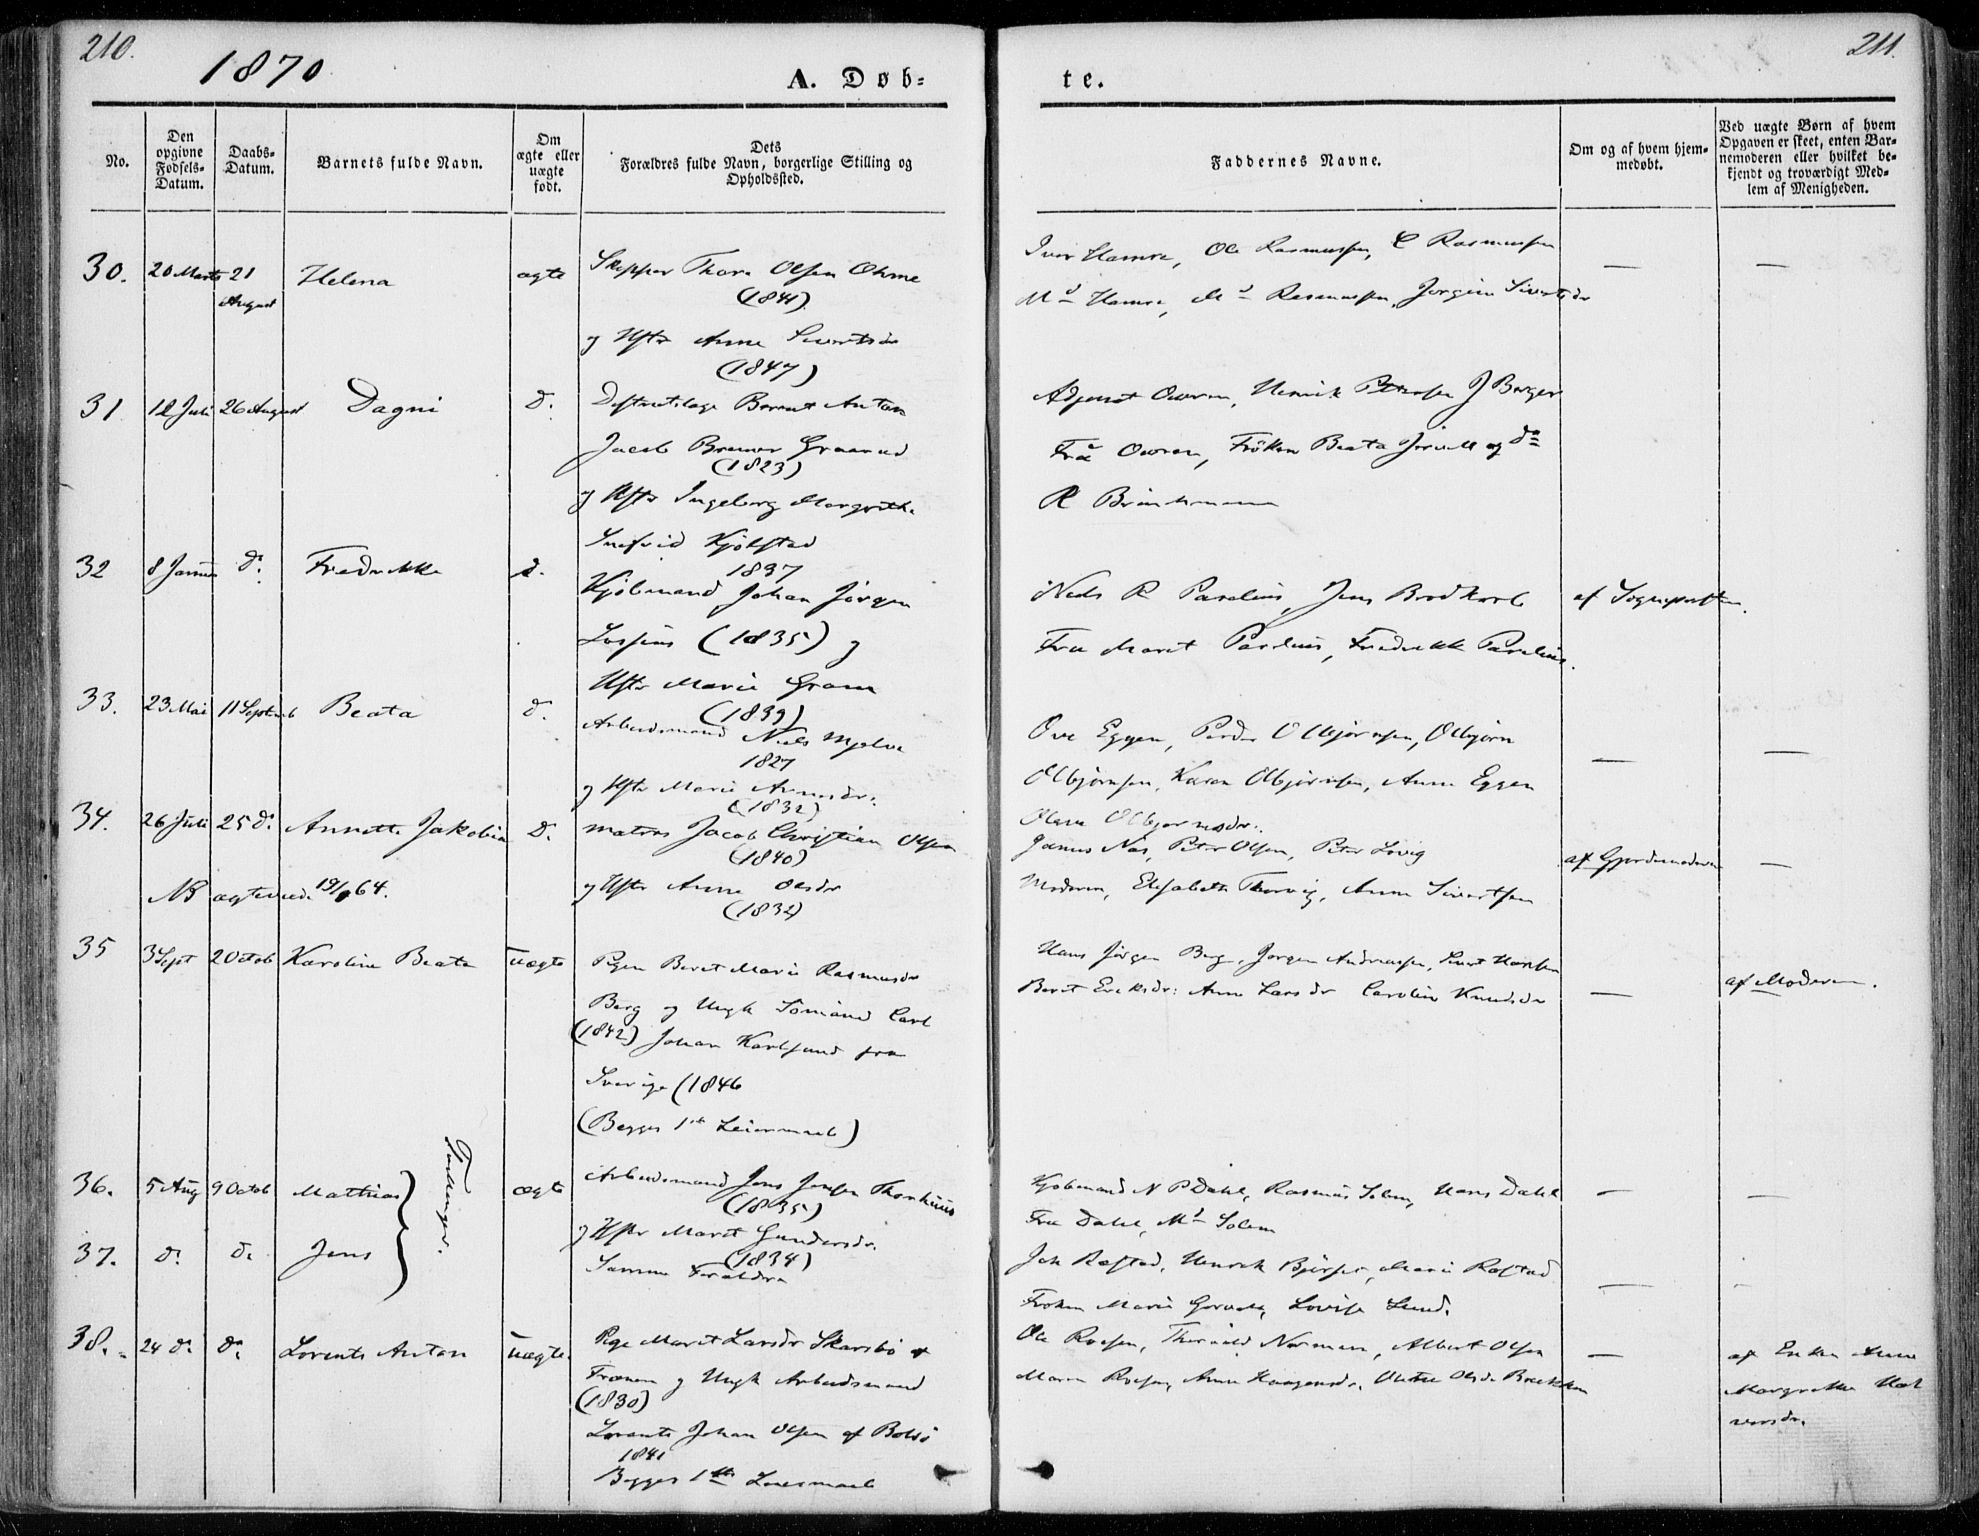 210.
1870
A. Døb=
No.
Den opgivne Fødsels-Datum.
Daabs-Datum.
Barnets fulde Navn.
Om ægte eller uægte født.
Dets Forældres fulde Navn, borgerlige Stilling og Opholdssted.
30. 20 Marts 21 August Helena ægte Skipper Thore Olsen
(1841)
og Hstr Anne Sivertsdr
(1847)
31. 12 Juli 26 August Dagni d. Berent Anton
Jacob Graarud
(1823)
og Hstr Ingeborg Margrethe
Kjølstad
1837
32 8 do. Fredrikke d. Kjøbmand Johan Jørgen
Lossius (1835) og
Hstr Marie Gram
(1839)
33. 23 Mai 11 Septemb Beata d. Arbeidsmand Niels Mjelve
1827
og Hstr Marie
(1832)
34. 26 Juli 25 do. Annette Jakobine d. Matros Jacob Christian Olsen
(1840)
NB ægteviede 64. og Hstr Anne Olsdr
(1832)
35 3 Sept 2 Octob Karoline Beata uægte Pigen Beret Marie Rasmusdr
Berg og Ungk Sömand Carl
(1842) Johan fra
Sverige (1846
(Begges 1ste Leiermaal)
36. 5 Aug 9 Octob Mathias Tvillinger. ægte Arbeidsmand Jens Jensen
(1835)
og Hstr Marit Gundersdr.
(1834)
37. do do Jens Samme Forældre
38. 24 do do Lorents Anton uægte. Pige Marit Larsdr Skarsbø af
Frænen og Ungk Arbeidsmand
(1830)
Lorents Johan Olsen af Bolsø
1841
Begges 1ste Leiermaal
211.
te.
Faddernes Navne.
Om og af hvem hjem-
medøbt.
Ved uægte Børn af hvem
Opgaven er skeet, enten Bar-
nemoderen eller hvilket be-
kjendt og troværdigt Med-
lem af Menigheden.
Iver Hamre, Ole Rasmussen, C Rasmussen
Md Hamre, Md Rasmussen, Sivertsdr
Adjunct Owren, Henrik Petersen J Berger
Fru Owren, Frøken Beata og do
R Brinchmann
Niels R Parelius, Jens Brodkorb af Sognepresten.
Fru Marit Parelius, Fredrikke Parelius.
Ove Eggen, Peder Olbjørnsen, Olbjørn
Olbjørnsen, Karen Olbjørnsen, Anne Eggen
Olbjørnsdr.
Janus Næs, Peter Olsen, Peter af Gjordemoderen
Moderen, Elisabeth, Anne Sivertsen
Hans Jørgen Berg, Jørgen Andreassen, Sivert Hansen
Beret Eriksdr. Anne Larsdr Caroline Knudsdr af Moderen.
Kjøbmand N P Dahl, Rasmus Solem, Hans Dahl
Fru Dahl, Md Solem
Joh Røstad, Henrik, Marie Røstad
Frøken Marie, Lovise Lund.
Ole Roesen, Thorvald Normann, Albert Olsen af Enken Anne
Maren Roesen, Anne Haagensdr, Olsdr Brekken Margrethe Hal
vorsdr.